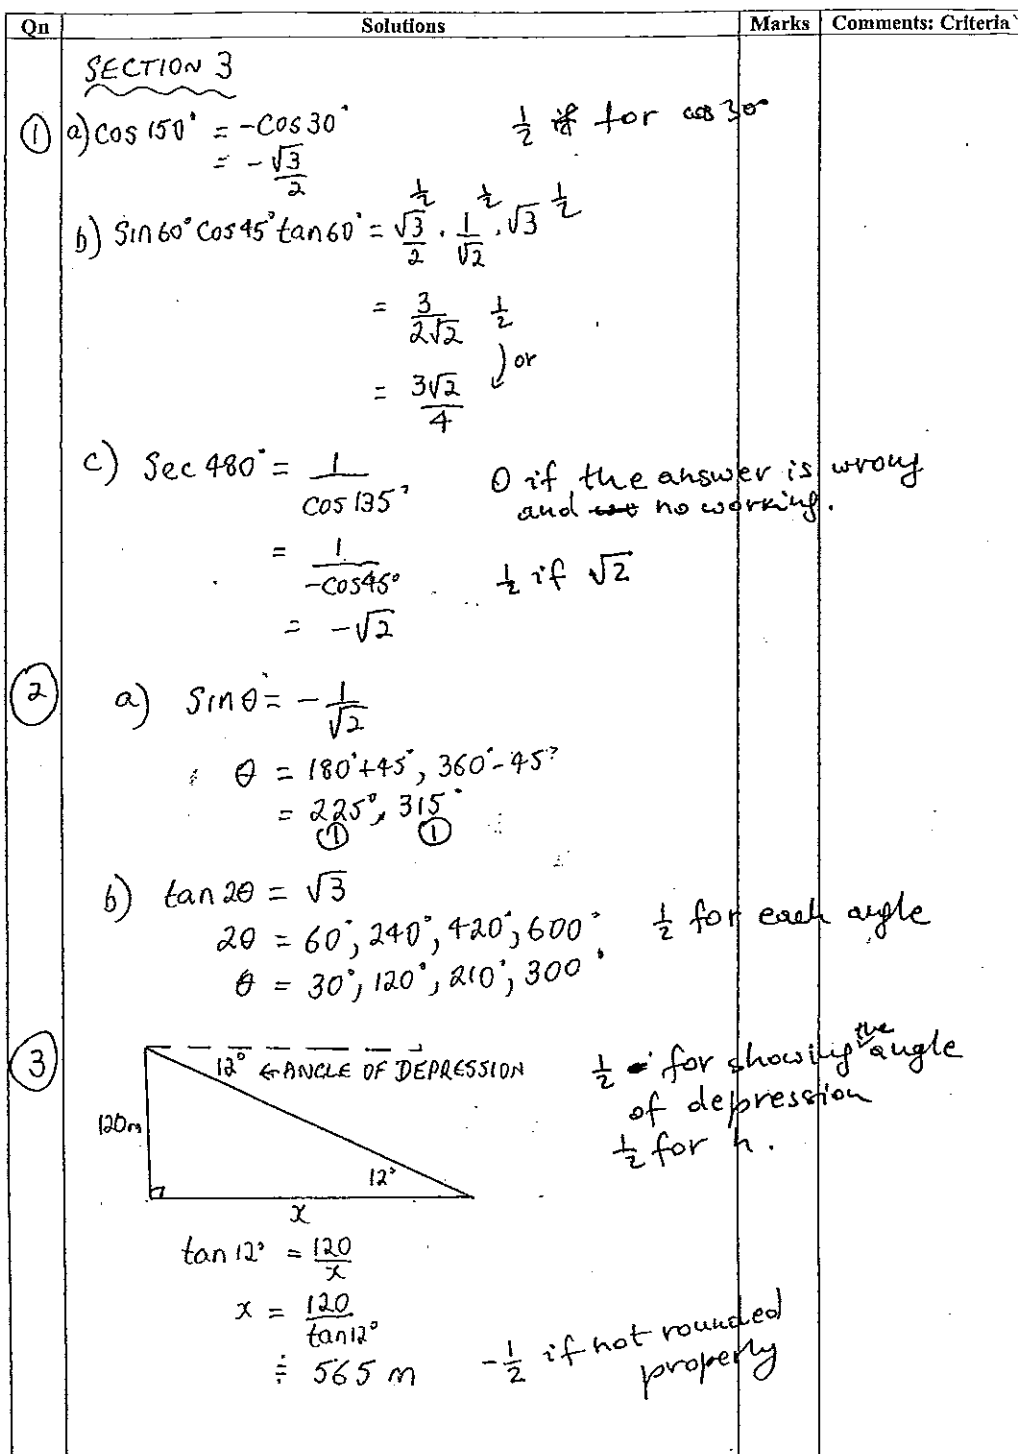 Qn Solutions Marks Comments: Criteria
SECTION 3
① a) cos 150° = -cos 30° ½ for cos 30
= -√3/2
b) sin 60° cos 45° tan 60° = √3/2 ½ . 1/√2 ½ . √3 ½
= 3/(2√2) ½
) or
= 3√2/4
c) Sec 480° = 1/cos 135° 0 if the answer is wrong
and no working.
= 1/-cos 45° ½ if √2
= -√2
② a) sin θ = -1/√2
θ = 180° + 45°, 360° - 45°
= 225°, 315°
① ①
b) tan 2θ = √3
2θ = 60°, 240°, 420°, 600° ½ for each angle
θ = 30°, 120°, 210°, 300°
③ 12° ← ANGLE OF DEPRESSION ½ for showing the angle
of depression
120m ½ for h.
12°
x
tan 12° = 120/x
x = 120/tan 12°
≑ 565 m -½ if not rounded
properly